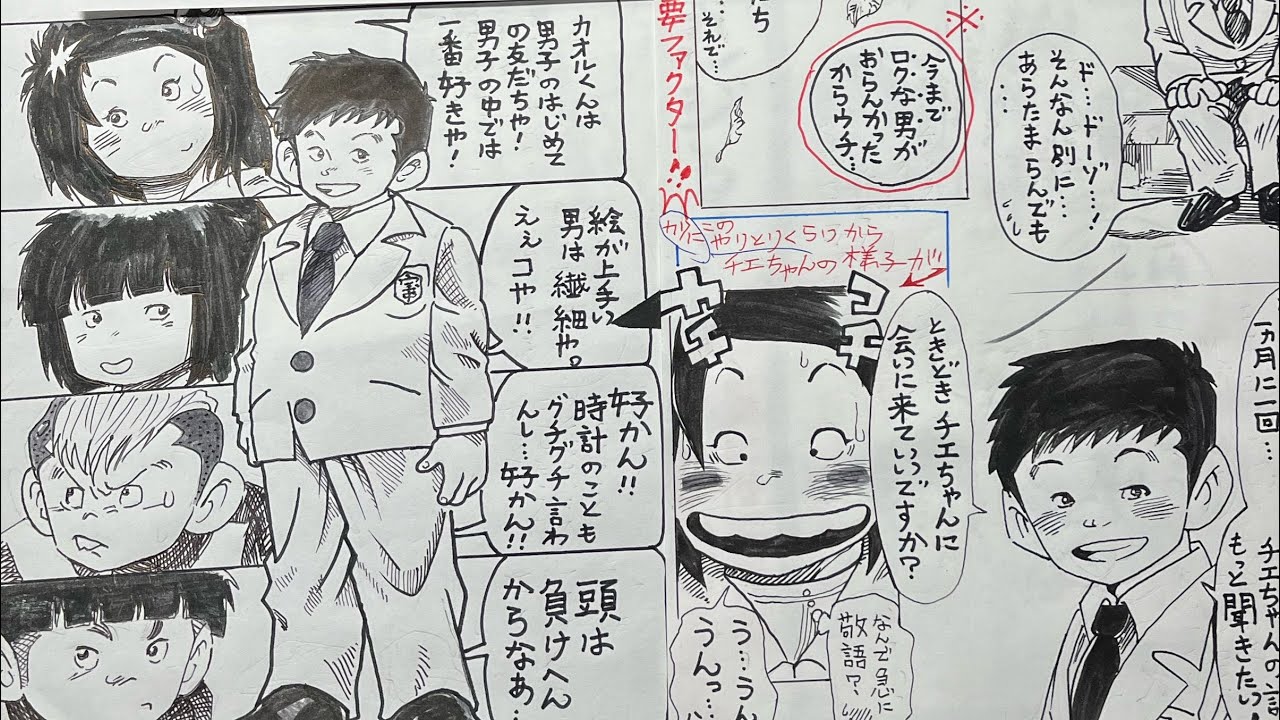 ド…ドーゾ…!
そんなん別に…
あらたまらんでも
…
※
今まで
ロクな男が
おらんかった
からウチ…
それで…
要ファクター!!
かりにこのやりとりくらいから
チエちゃんの様子が
一ヵ月に一回…
チエちゃんの話
もっと聞きたい!
ときどきチエちゃんに
会いに来ていいですか?
コチ
カチ
なんで急に
敬語?
う…うん
うんっ…
カオルくんは
男子のはじめて
の友だちや!
男子の中では
一番好きや!
絵が上手い
男は繊細や。
ええコや!!
好かん!!
時計のことも
グチグチ言わ
んし…好かん!!
頭は
負けへん
からなあ…